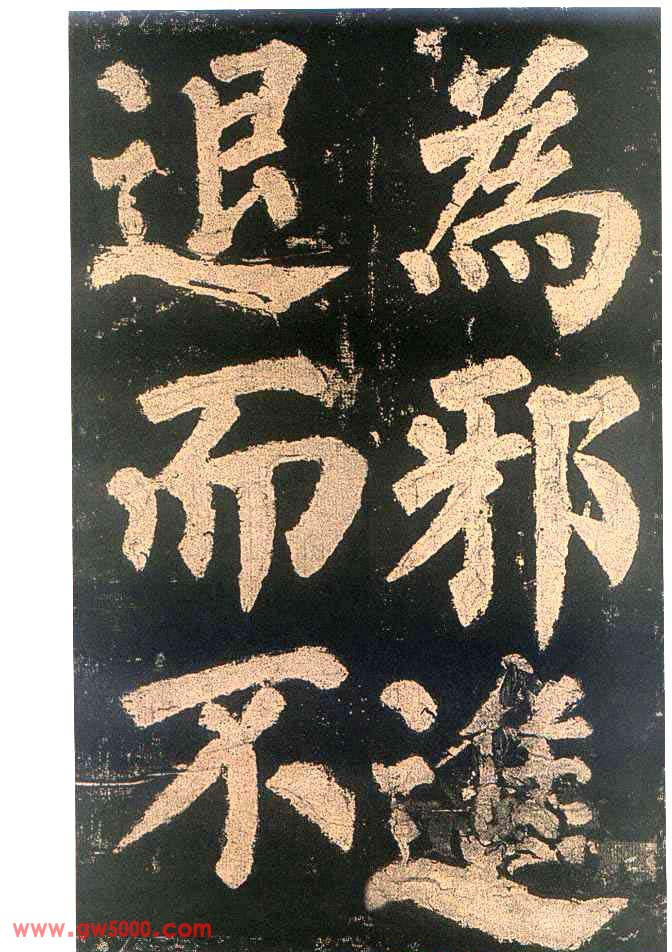 為邪進
退而不
www.gw5000.com